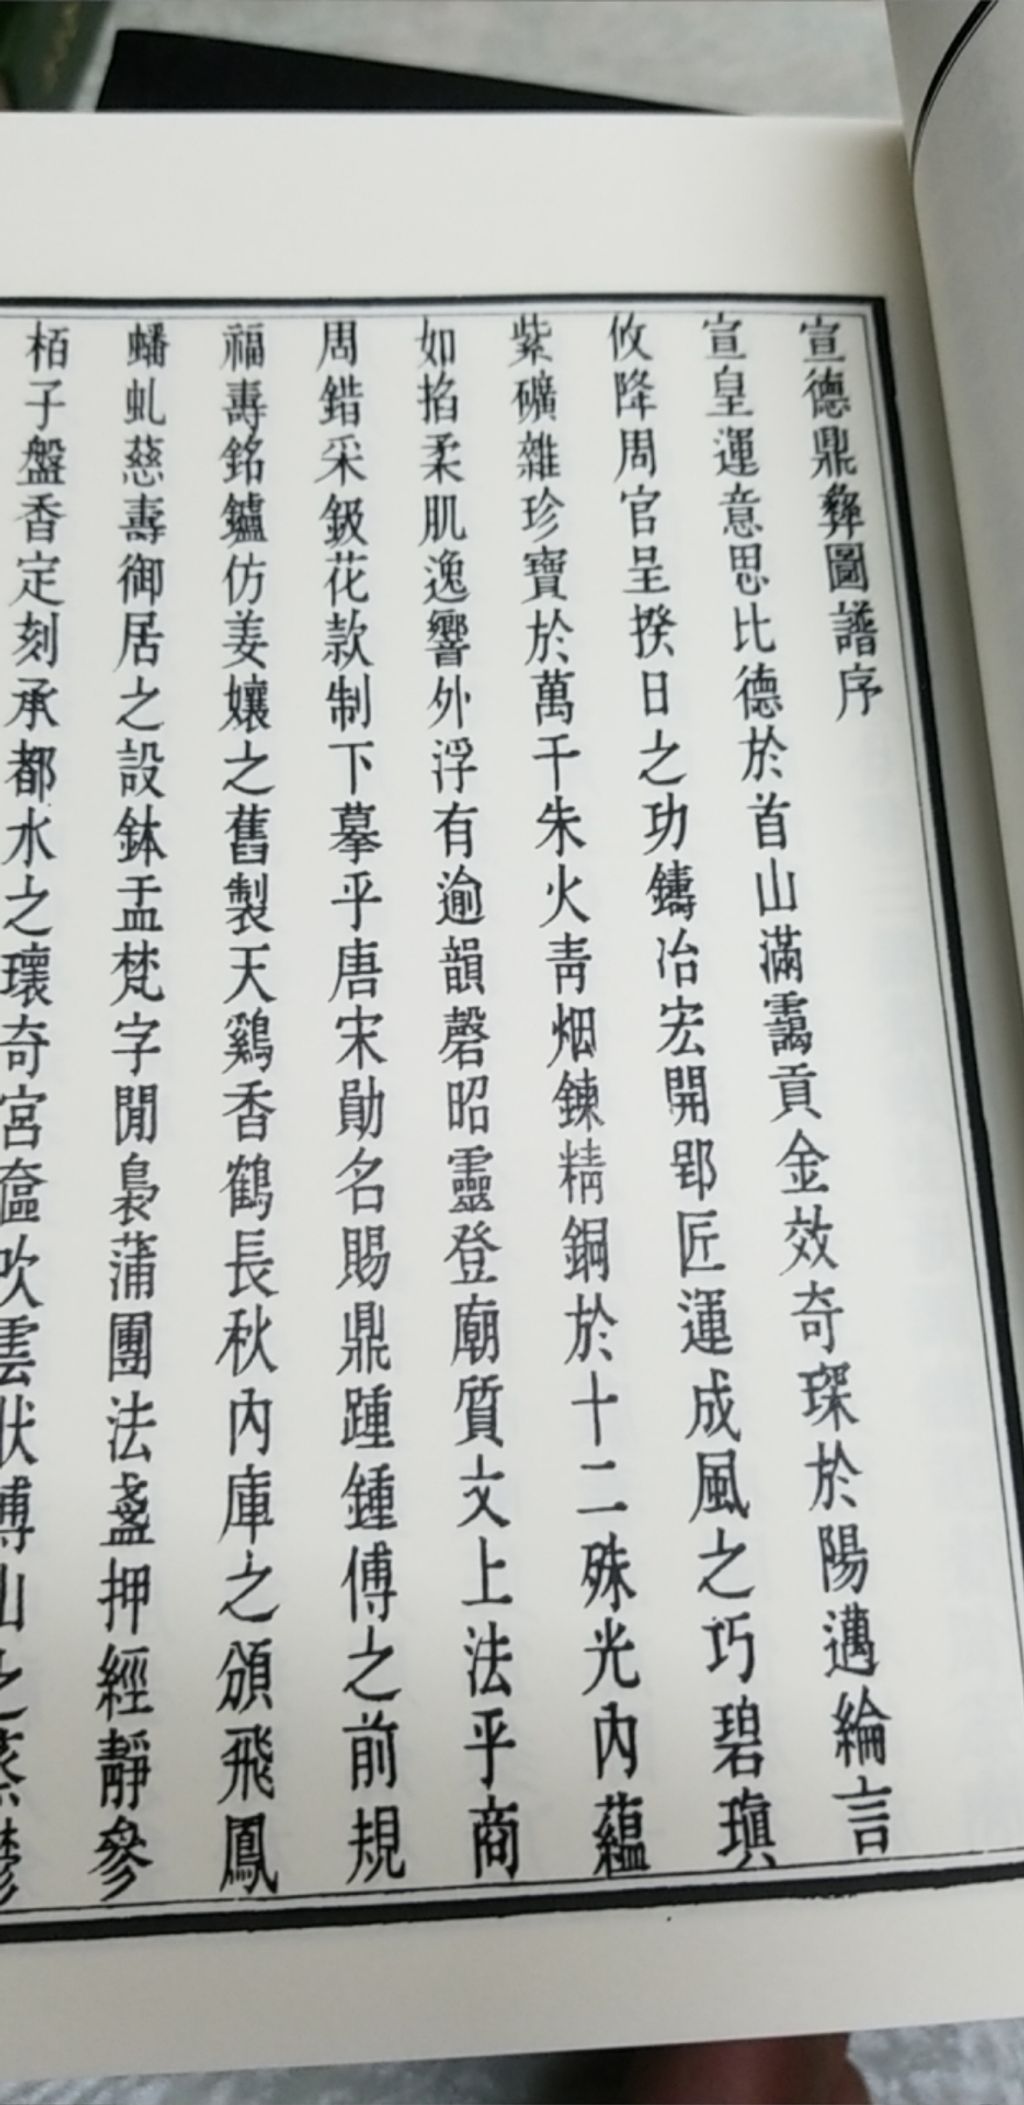 宣德鼎彝圖譜序
宣皇運意思比德於首山滿靄貢金效奇琛於陽邁綸言
攸降周官呈揆日之功鑄冶宏開郢匠運成風之巧碧瑱
紫礦雜珍寶於萬千朱火青烟鍊精銅於十二殊光內蘊
如掐柔肌逸響外浮有逾韻磬昭靈登廟質文上法乎商
周錯采鈒花款制下摹乎唐宋勛名賜鼎踵鍾傅之前規
福壽銘鑪仿姜孃之舊製天鷄香鶴長秋內庫之頒飛鳳
蟠虬慈壽御居之設鉢盂梵字閒裊蒲團法盞押經靜參
栢子盤香定刻承都水之瓌奇宮奩吹雲狀博山之蒸鬱